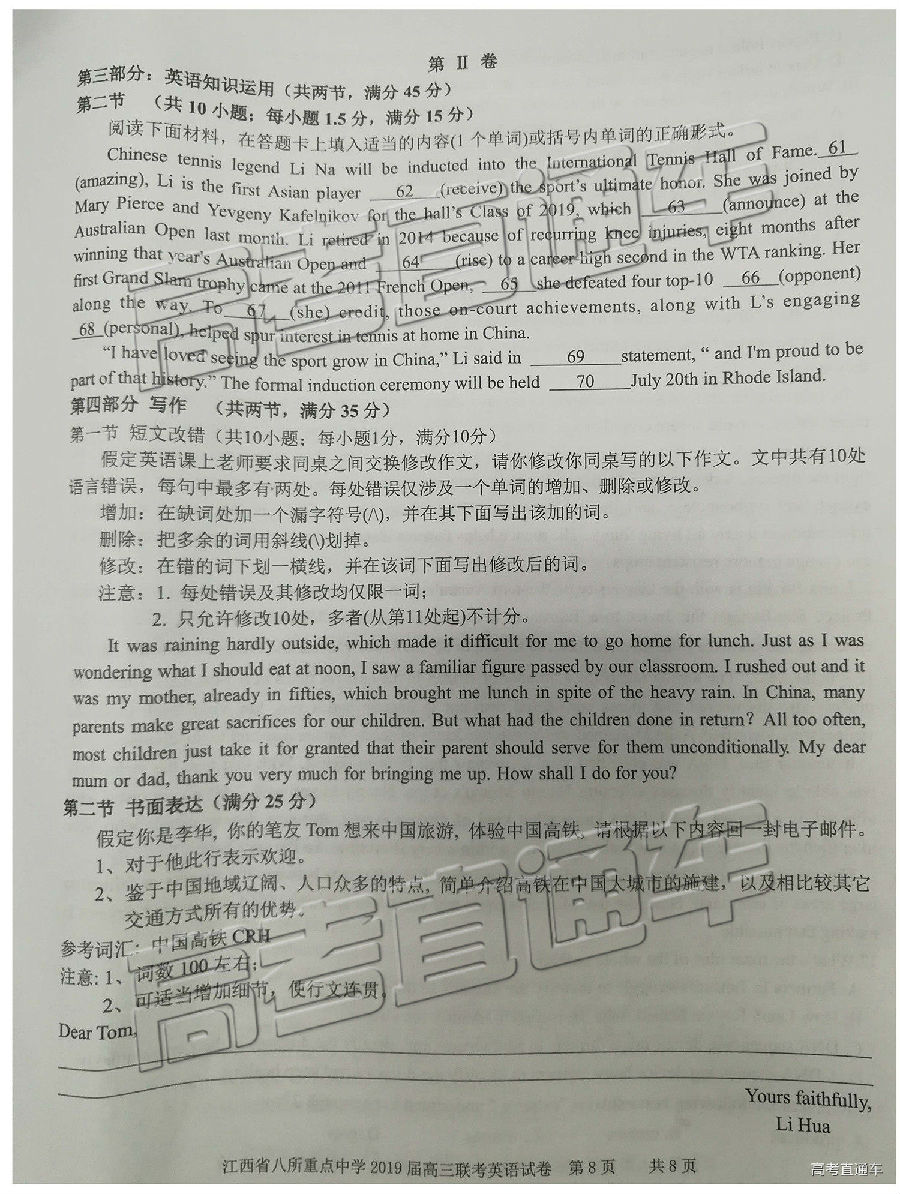 第 II 卷
第三部分：英语知识运用（共两节，满分 45 分）
第二节 （共 10 小题；每小题 1.5 分，满分 15 分）
阅读下面材料，在答题卡上填入适当的内容(1 个单词)或括号内单词的正确形式。
Chinese tennis legend Li Na will be inducted into the International Tennis Hall of Fame. 61
(amazing), Li is the first Asian player 62 (receive) the sport's ultimate honor. She was joined by
Mary Pierce and Yevgeny Kafelnikov for the hall's Class of 2019, which 63 (announce) at the
Australian Open last month. Li retired in 2014 because of recurring knee injuries, eight months after
winning that year's Australian Open and 64 (rise) to a career-high second in the WTA ranking. Her
first Grand Slam trophy came at the 2011 French Open, 65 she defeated four top-10 66 (opponent)
along the way. To 67 (she) credit, those on-court achievements, along with L's engaging
68 (personal), helped spur interest in tennis at home in China.
“I have loved seeing the sport grow in China,” Li said in 69 statement, “ and I'm proud to be
part of that history.” The formal induction ceremony will be held 70 July 20th in Rhode Island.
第四部分 写作 （共两节，满分 35 分）
第一节 短文改错（共10小题；每小题1分，满分10分）
假定英语课上老师要求同桌之间交换修改作文，请你修改你同桌写的以下作文。文中共有10处
语言错误，每句中最多有两处。每处错误仅涉及一个单词的增加、删除或修改。
增加：在缺词处加一个漏字符号(/\)，并在其下面写出该加的词。
删除：把多余的词用斜线(\)划掉。
修改：在错的词下划一横线，并在该词下面写出修改后的词。
注意：1. 每处错误及其修改均仅限一词；
2. 只允许修改10处，多者(从第11处起)不计分。
It was raining hardly outside, which made it difficult for me to go home for lunch. Just as I was
wondering what I should eat at noon, I saw a familiar figure passed by our classroom. I rushed out and it
was my mother, already in fifties, which brought me lunch in spite of the heavy rain. In China, many
parents make great sacrifices for our children. But what had the children done in return? All too often,
most children just take it for granted that their parent should serve for them unconditionally. My dear
mum or dad, thank you very much for bringing me up. How shall I do for you?
第二节 书面表达（满分 25 分）
假定你是李华, 你的笔友 Tom 想来中国旅游, 体验中国高铁。请根据以下内容回一封电子邮件。
1、对于他此行表示欢迎。
2、鉴于中国地域辽阔、人口众多的特点, 简单介绍高铁在中国大城市的施建，以及相比较其它
交通方式所有的优势。
参考词汇：中国高铁 CRH
注意: 1、词数 100 左右；
2、可适当增加细节，使行文连贯。
Dear Tom,
Yours faithfully,
Li Hua
江西省八所重点中学 2019 届高三联考英语试卷 第 8 页 共 8 页
高考直通车
高考直通车
高考直通车